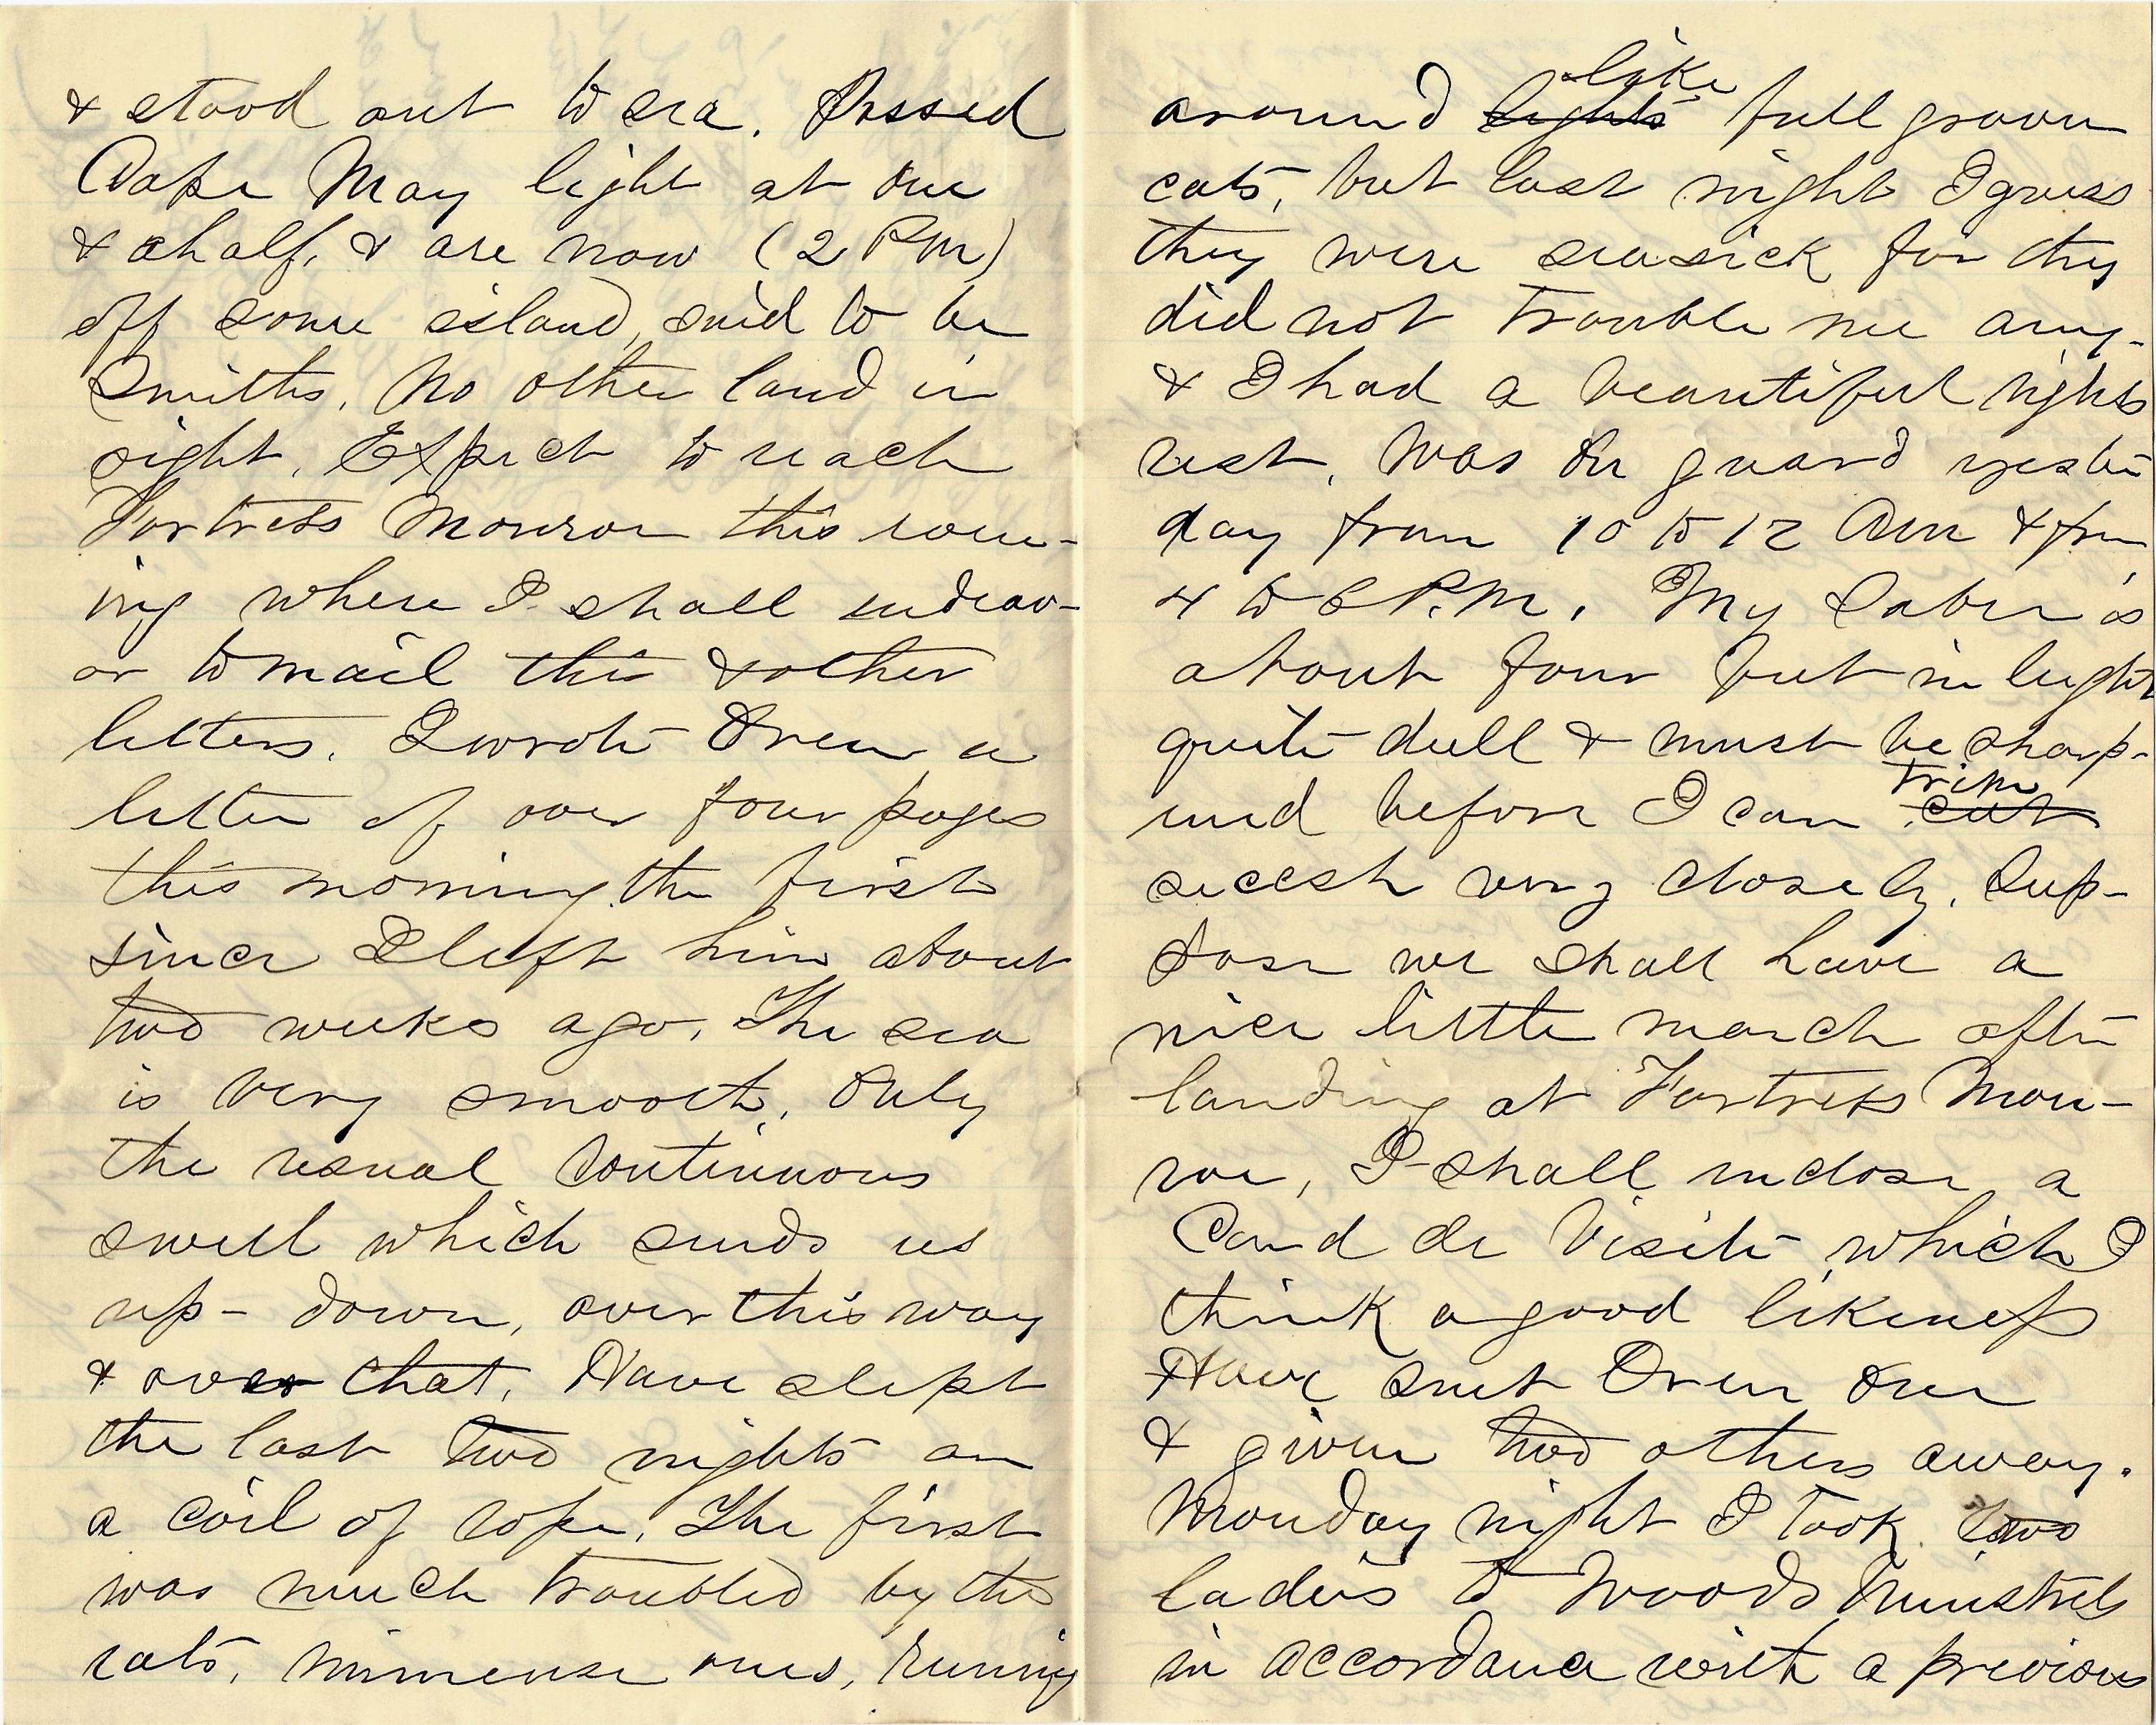 & stood out to sea. Passed
Cape May light at one
& a half, & are now (2 PM)
off some island, said to be
Smiths. No other land in
sight. Expect to reach
Fortress Monroe this even-
ing where I shall endeav-
or to mail this & other
letters. I wrote Oren a
letter of over four pages
this morning, the first
since I left him about
two weeks ago. The sea
is very smooth, only
the usual continuous
swell which sends us
up- down, over this way
& over that. Have slept
the last two nights on
a coil of rope. The first
was much troubled by the
rats, immense ones, runing
around ~~lights~~ like full grown
cats, but last night I guess
they were seasick for they
did not trouble me any-
& I had a beautiful nights
rest. Was on guard yester
day from 10 to 12 AM & from
4 to 6 P.M. My Saber is
about four feet in light
quite dull & must be sharp-
ened before I can ~~cut~~ trim
secesh very closely. Sup-
pose we shall have a
nice little march after
landing at Fortress Mon-
roe, I shall inclose a
Card de Visite which I
think a good likeness
Have sent Oren one
& given two others away.
Monday night I took two
ladies to Woods Minstrels
in accordance with a previous